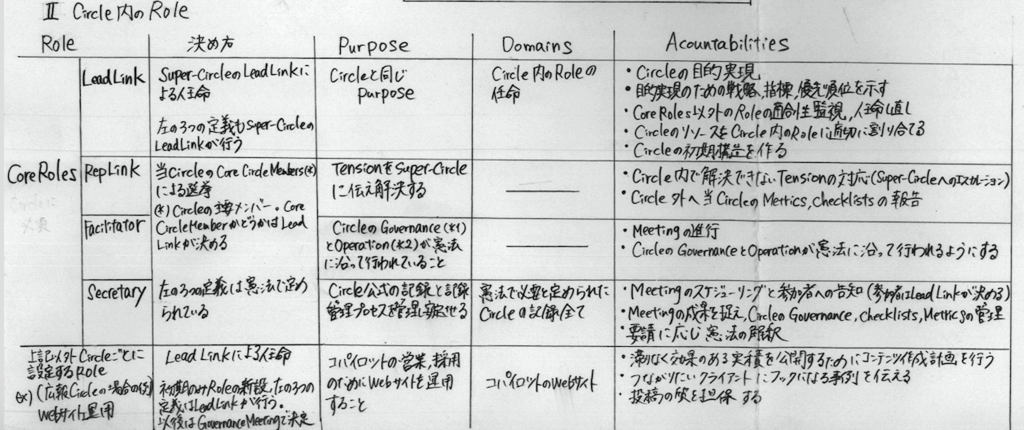 Ⅱ Circle内のRole
Role 決め方 Purpose Domains Acountabilities
CoreRoles
LeadLink
Super-CircleのLeadLinkに
よる任命
左の3つの定義もSuper-Circleの
LeadLinkが行う
Circleと同じ
purpose
Circle内のRoleの
任命
・Circleの目的実現
・目的実現のための戦略、指標、優先順位を示す
・CoreRoles以外のRoleの適合性監視、任命し直し
・CircleのリソースをCircle内のRoleに適切に割り当てる
・Circleの初期構造を作る
RepLink
当CircleのCore CircleMembers(*)
による選挙
(*)Circleの主要メンバー。Core
CircleMemberかどうかはLead
Linkが決める
TensionをSuper-Circle
に伝え解決する
・Circle内で解決できないTensionの対応(Super-Circleへのエスカレーション)
・Circle外へ当CircleのMetrics,checklistsの報告
Facilitator
CircleのGovernance(*1)
とOperation(*2)が憲法
に沿って行われていること
・Meetingの進行
・CircleのGovernanceとOperationが憲法に沿って行われるようにする
Secretary
左の3つの定義は憲法で定め
られている
Circle公式の記録と記録
管理プロセスを管理し安定させる
憲法で必要と定められた
Circleの記録全て
・Meetingのスケジューリングと参加者への告知(参加者はLeadLinkが決める)
・Meetingの成果を捉え、CircleのGovernance,checklists,Metricsの管理
・要請に応じ憲法の解釈
上記以外Circleごとに
設定するRole
ex)(広報Circleの場合の例)
Webサイト運用
Lead Linkによる任命
初期のみRoleの新設、左の3つの
定義はLeadLinkが行う。
以後はGovernanceMeetingで決定
コパイロットの営業、採用
のためにWebサイトを運用
すること
コパイロットのWebサイト
・滞りなく効果のある実績を公開するためにコンテンツ作成計画を行う
・つながりたいクライアントにフックになる事例を伝える
・投稿の質を担保する